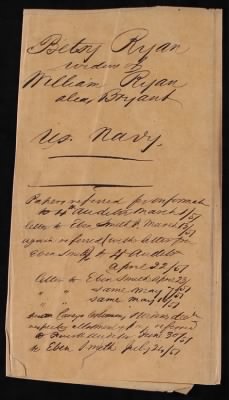 Betsy Ryan
widow of
William Ryan
alias Bryant
U.S. Navy.
Papers referred for informat
to 4th Auditor March 1/61
letter to Eben Smith Jr March
again referred (with letter from
Eben Smith) to 4 Auditor
April 22/61
letter to Eben Smith April 23
" " same May
" " same May
respecting allotment of referred
to Fourth Auditor June 30/61
to Eben Smith July 20/61